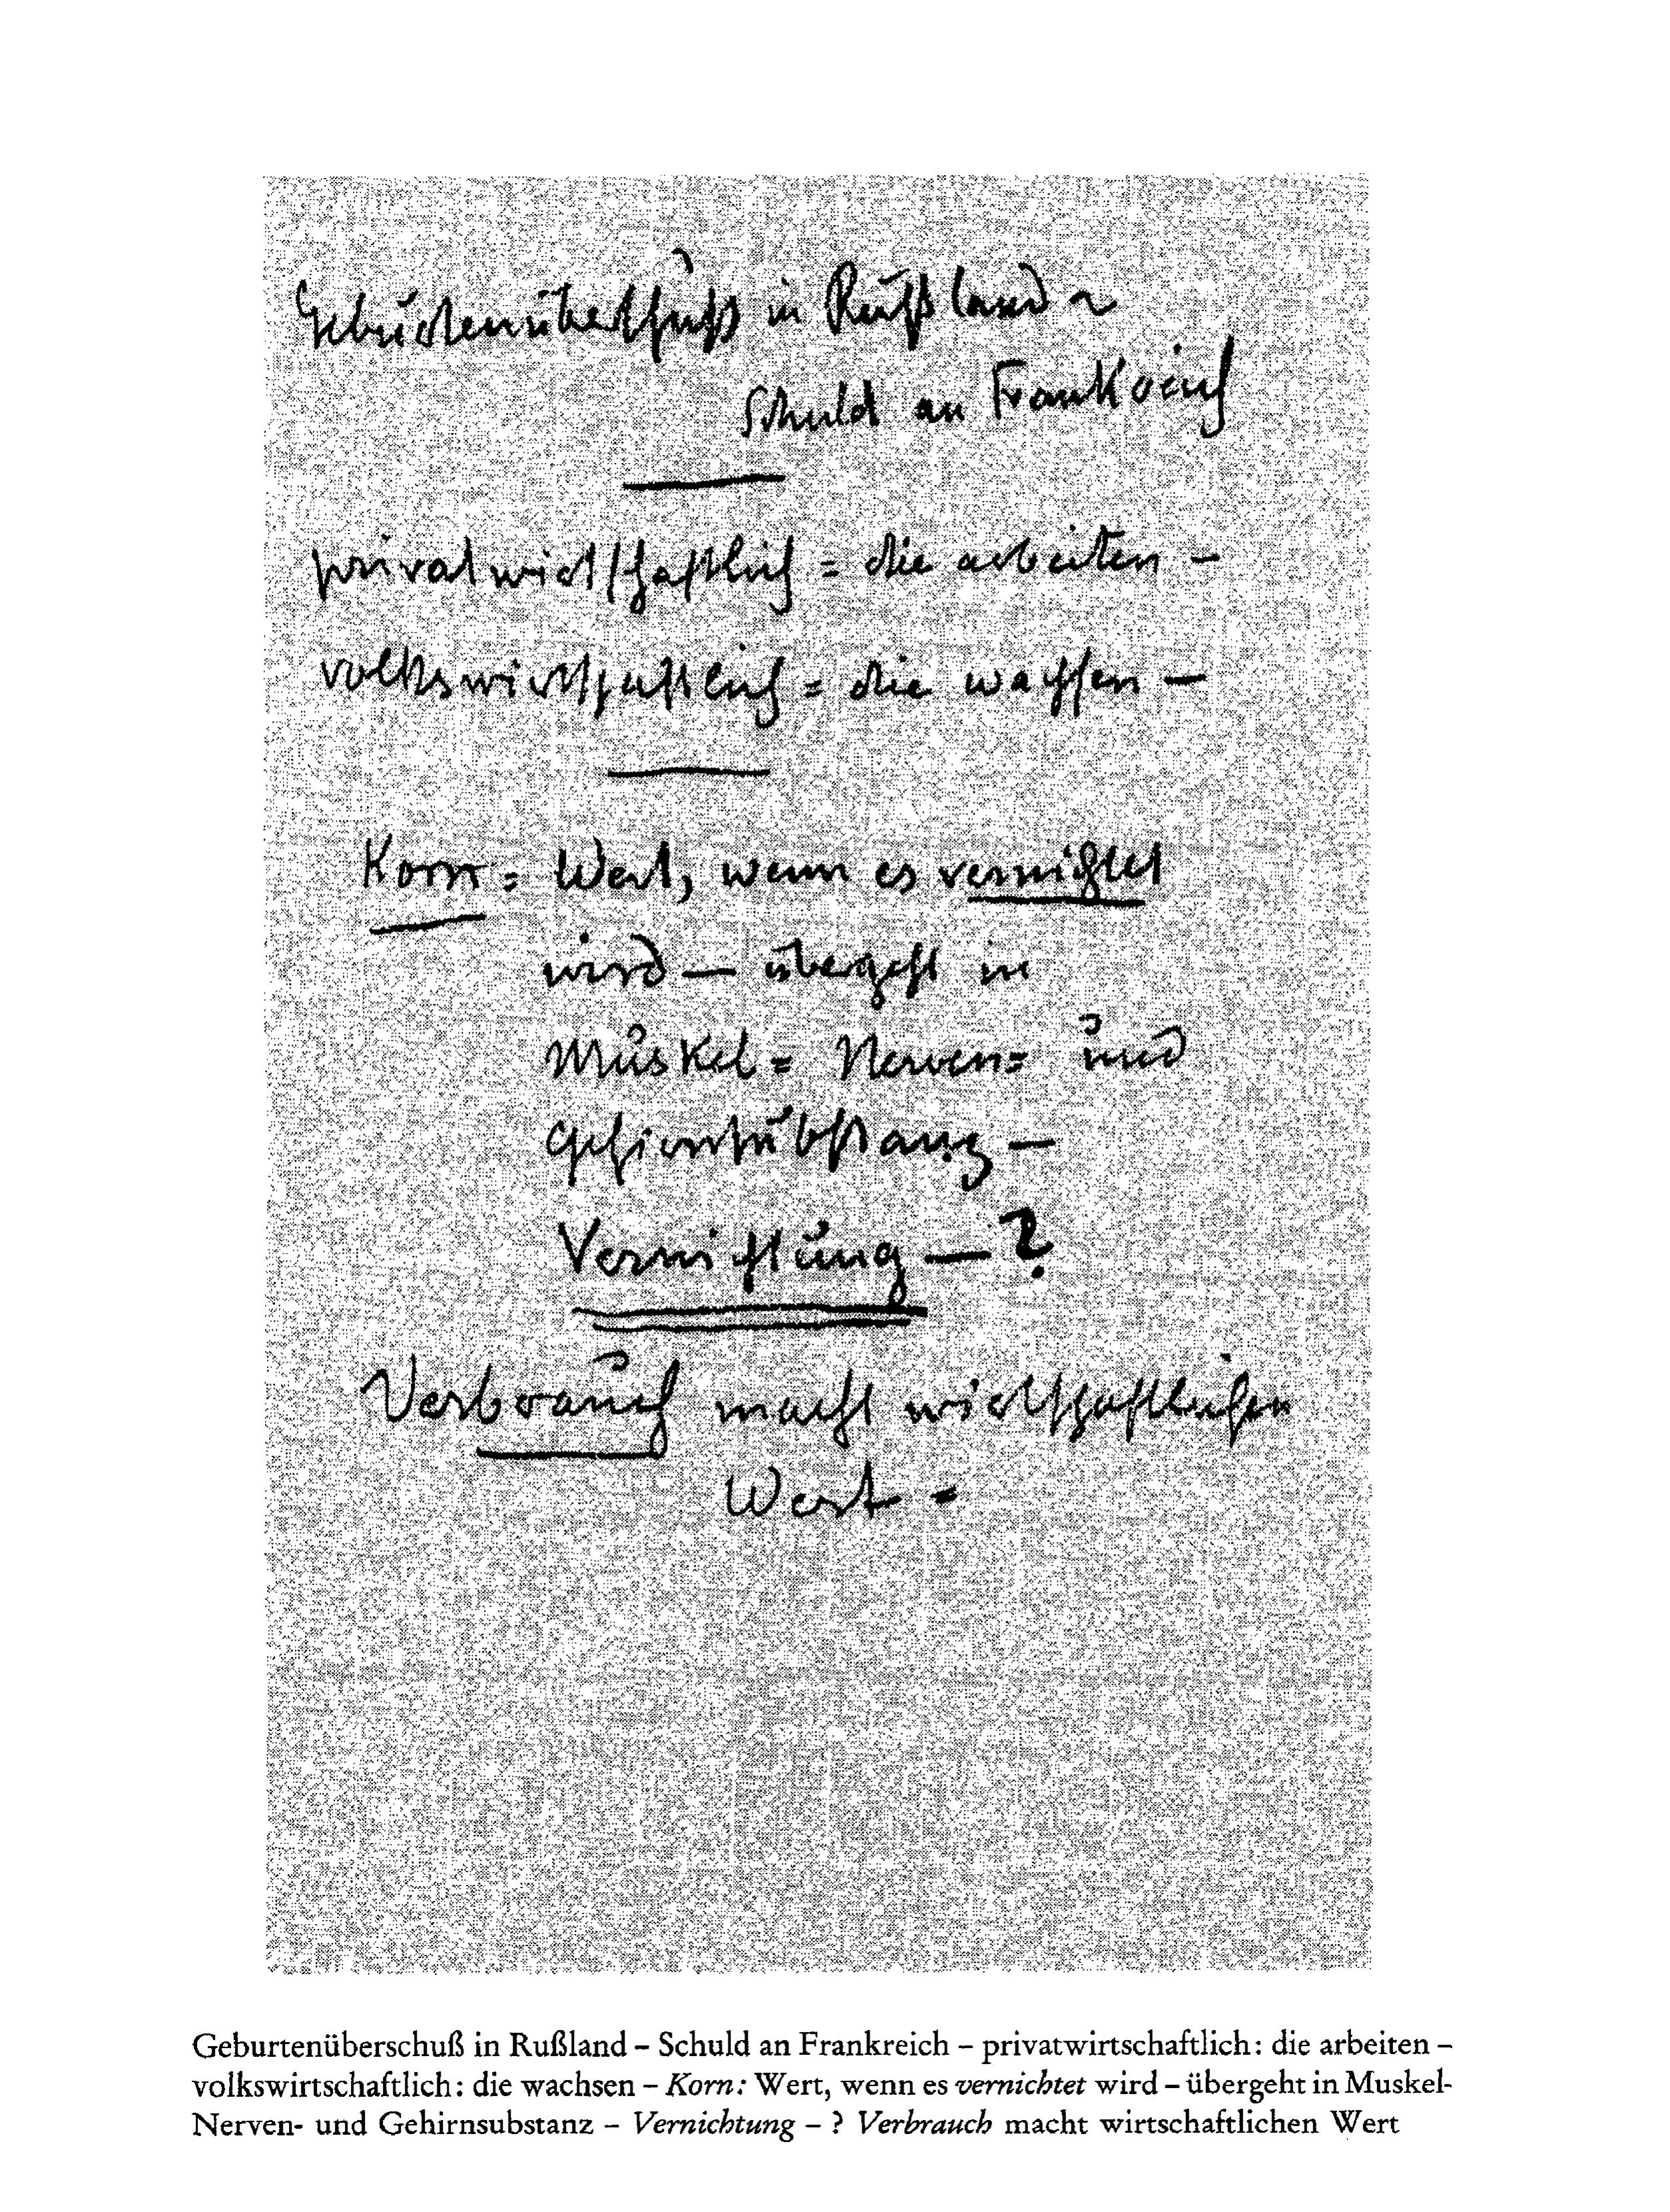 Geburtenüberschuß in Rußland ~
Schuld an Frankreich
privatwirtschaftlich = die arbeiten –
volkswirtschaftlich = die wachsen –
Korn = Wert, wenn es vernichtet
wird – übergeht in
Muskel= Nerven= und
Gehirnsubstanz –
Vernichtung – ?
Verbrauch macht wirtschaftlichen
Wert =
Geburtenüberschuß in Rußland – Schuld an Frankreich – privatwirtschaftlich: die arbeiten –
volkswirtschaftlich: die wachsen – Korn: Wert, wenn es vernichtet wird – übergeht in Muskel-
Nerven- und Gehirnsubstanz – Vernichtung – ? Verbrauch macht wirtschaftlichen Wert